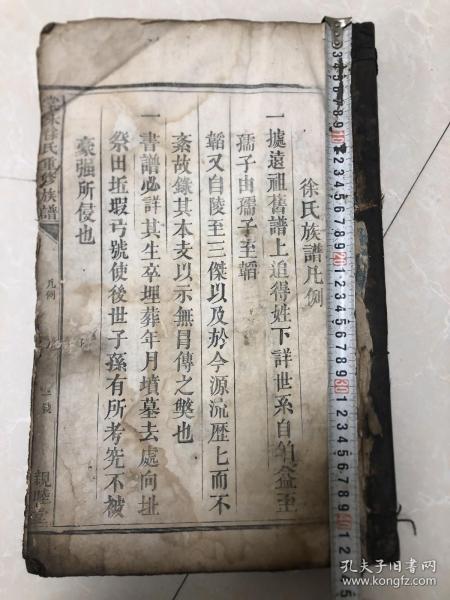 徐氏族譜凡例
一據遠祖舊譜上追得姓下詳世系自伯益至
孺子由孺子至韜
韜又自陵至三傑以及於今源流歷上而不
紊故錄其本支以示無冒傳之獘也
一書譜必詳其生卒埋葬年月墳墓去處向址
祭田坵叚弓號使後世子孫有所考究不被
豪强所侵也
徐氏重修族譜
凡例
親睦堂
孔夫子旧书网
www.kongfz.com